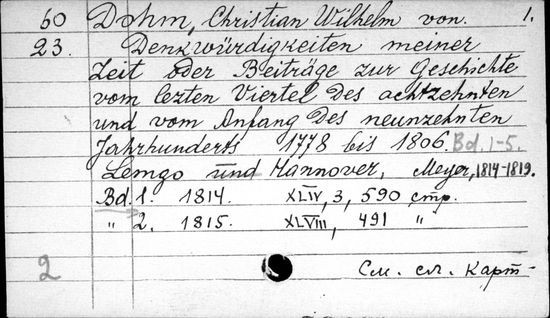 60 Dohm, Christian Wilhelm von. 1.
23. Denkwürdigkeiten meiner
Zeit oder Beiträge zur Geschichte
vom lezten Viertel des achtzehnten
und vom Anfang des neunzehnten
Jahrhunderts 1778 bis 1806. Bd. 1-5.
Lemgo und Hannover, Meyer, 1814-1819.
Bd. 1. 1814. XLIV, 3, 590 стр.
" 2. 1815. XLVIII, 491 "
2 См. сл. карт-